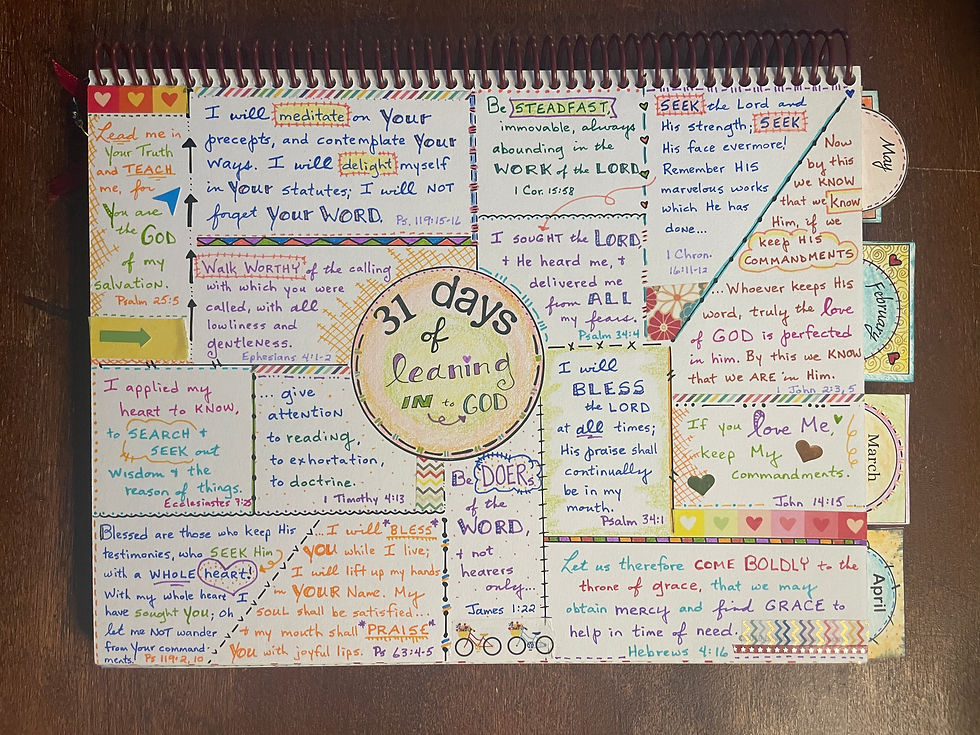 Lead me in
Your Truth
and TEACH
me, for
You are
the GOD
of my
salvation.
Psalm 25:5
I will meditate on Your
precepts, and contemplate Your
Ways. I will delight myself
in Your statutes; I will NOT
forget YOUR WORD. Ps. 119:15-16
Be STEADFAST,
immovable, always
abounding in the
WORK of the LORD
1 Cor. 15:58
SEEK the Lord and
His strength; SEEK
His face evermore!
Remember HIS
marvelous works
which He has
done...
1 Chron.
16:11-12
Now
by this
we KNOW
that we Know
Him, if we
keep HIS
COMMANDMENTS
...Whoever keeps His
word, truly the love
of GOD is perfected
in him. By this we KNOW
that we ARE in Him.
1 John 2:3, 5
Walk WORTHY of the calling
with which you were
called, with all
lowliness and
gentleness.
Ephesians 4:1-2
I SOUGHT the LORD,
+ He heard me, +
delivered me
from ALL
my fears.
Psalm 34:4
31 days
of
leaning
IN to GOD
I applied my
heart to KNOW,
to SEARCH +
SEEK out
Wisdom + the
reason of things.
Ecclesiastes 7:25
... give
attention
to reading,
to exhortation,
to doctrine.
1 Timothy 4:13
I will
BLESS
the LORD
at all times;
His praise shall
continually
be in my
mouth.
Psalm 34:1
If you love Me,
keep My
Commandments.
John 14:15
Blessed are those who keep His
testimonies, who SEEK Him
with a WHOLE heart!
With my whole heart I
have sought YOU; oh
let me NOT wander
from Your command-
ments. Ps 119:2, 10
...I will *BLESS*
YOU while I live;
I will lift up my hands
in YOUR Name. My
SOUL shall be satisfied...
+ my mouth shall *PRAISE*
YOU with joyful lips. Ps 63:4-5
Be DOERs
of the
WORD,
+ not
hearers
only...
James 1:22
Let us therefore COME BOLDLY to the
throne of grace, that we may
obtain mercy and find GRACE to
help in time of need.
Hebrews 4:16
May
February
March
April